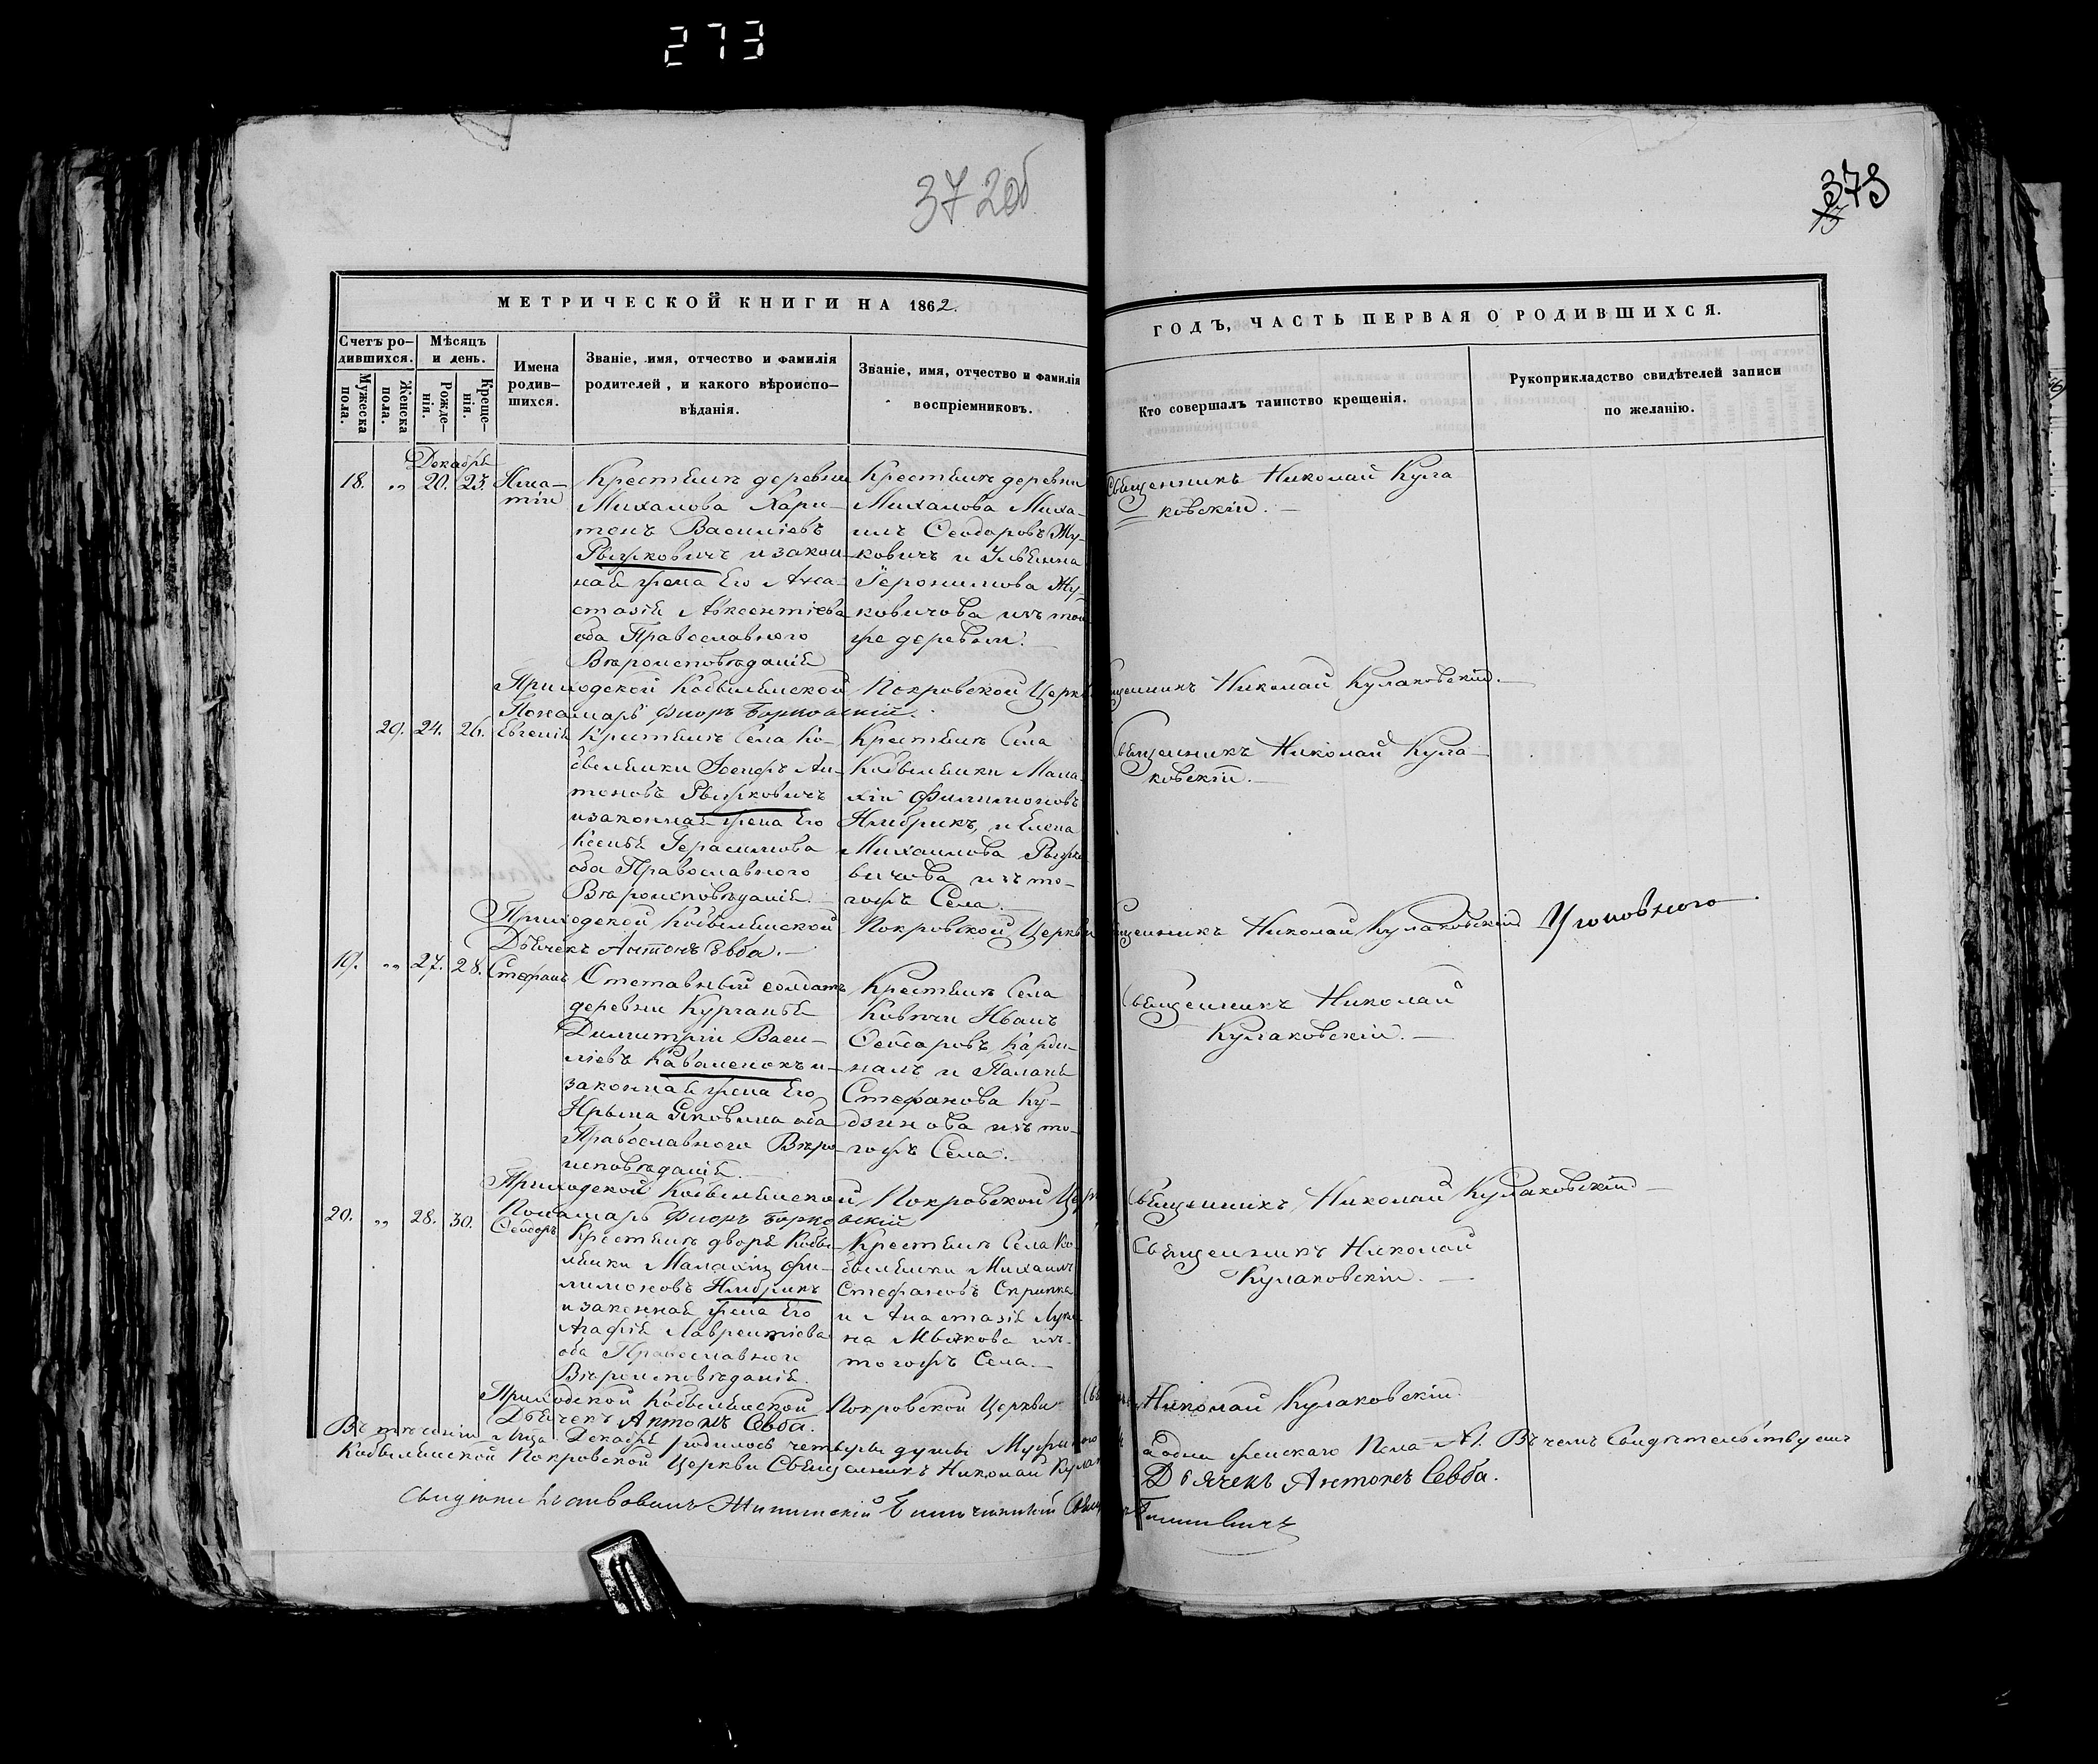 273
372об
373
13
МЕТРИЧЕСКОЙ КНИГИ НА 1862.
ГОДЪ, ЧАСТЬ ПЕРВАЯ О РОДИВШИХСЯ.
Счетъ ро-
дившихся.
Мужеска
пола.
Женска
пола.
Мѣсяцъ
и день.
Рожде-
нія.
Креще-
нія.
Имена
родив-
шихся.
Званіе, имя, отчество и фамилія
родителей, и какого вѣроиспо-
вѣданія.
Званіе, имя, отчество и фамилія
воспріемниковъ.
Кто совершалъ таинство крещенія.
Рукоприкладство свидѣтелей записи
по желанію.
Декабрь
18. „ 20. 23. Игна-
тій
Крестьянъ деревни
Михалова Хари-
тонъ Василіевъ
Рыжковичъ и закон-
ная жена Его Ана-
стасія Авксентіева
оба Православного
Вѣроисповѣданія
Крестьянъ деревни
Михалова Миха-
илъ Ѳеодоровъ Жу-
ковичъ и Ульянна
Іеронимова Жу-
ковичова изъ той
же деревни.
Священникъ Николай Кула
ковскій.
Приходской Кобылянской Покровской Церкви Священникъ Николай Кулаковскій.
Понамарь Флоръ Борковскій.
29. 24. 26. Евгенія
Крестьянъ Села Ко-
былянки Іосифъ Ан-
тоновъ Рыжковичъ
и законная жена Его
Ксенія Герасимова
оба Православного
Вѣроисповѣданія.
Крестьянъ Села
Кобылянки Мала-
хій Филимоновъ
Имбрикъ, и Елена
Михаилова Рыжко
вичова изъ то-
гожъ Села.
Священникъ Николай Кула-
ковскій.
Приходской Кобылянской Покровской Церкви Священникъ Николай Кулаковскій
Дьячекъ Антонъ Севба.
19. „ 27. 28. Стефанъ
Отставный солдатъ
деревни Курганья
Димитрій Васи-
ліевъ Каваленокъ и
законная жена Его
Ирына Яковлева оба
Православного Вѣро-
исповѣданія
Крестьянъ Села
Иванъ
Ѳеодоровъ Карди-
налъ и Паланья
Стефанова Ку-
дзинова изъ то-
гожъ Села.
Священникъ Николай
Кулаковскій.
Приходской Кобылянской Покровской Церкви Священникъ Николай Кулаковскій
Понамарь Флоръ Борковскій
20. „ 28. 30. Ѳеодоръ
Крестьянъ двора Кобы-
лянки Малахій Фи-
лимоновъ Имбрикъ
и законная жена Его
Агафія Лаврентіева
оба Православного
Вѣроисповѣданія.
Крестьянъ Села Ко-
былянки Михаилъ
Стефановъ Скрипка
и Анастасія Луки-
на изъ
тогожъ Села.
Священникъ Николай
Кулаковскій.
Приходской Кобылянской Покровской Церкви Николай Кулаковскій
Дьячекъ Антонъ Севба.
Въ теченіи М-ца Декабря родилось четыри душы Мужеского а одна женскаго Пола. Въ чемъ Свидѣтельствуемъ
Кобылянской Покровской Церкви Священникъ Николай Кулаковскій
Дьячекъ Антонъ Севба.